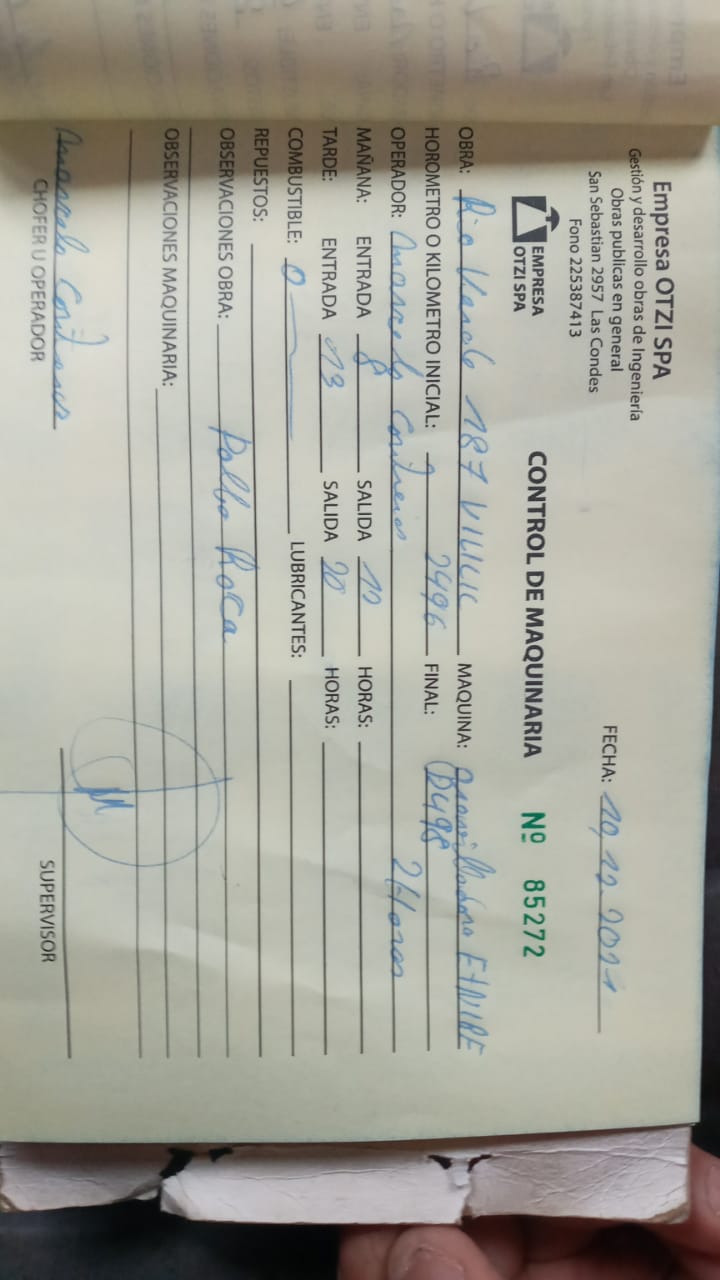 Empresa OTZI SPA
Gestión y desarrollo obras de Ingeniería
Obras publicas en general
San Sebastian 2957 Las Condes
Fono 225387413
FECHA: 10,12.2021
EMPRESA
OTZI SPA
CONTROL DE MAQUINARIA Nº 85272
OBRA: Rio 187 MAQUINA:
HOROMETRO O KILOMETRO INICIAL: 2496 FINAL: 2498
OPERADOR: Marcelo Contreras 2 Horas
MAÑANA: ENTRADA 8 SALIDA HORAS:
TARDE: ENTRADA 13 SALIDA 20 HORAS:
COMBUSTIBLE: 0 LUBRICANTES:
REPUESTOS:
OBSERVACIONES OBRA: Roca
OBSERVACIONES MAQUINARIA:
Marcelo Contreras
CHOFER U OPERADOR
SUPERVISOR